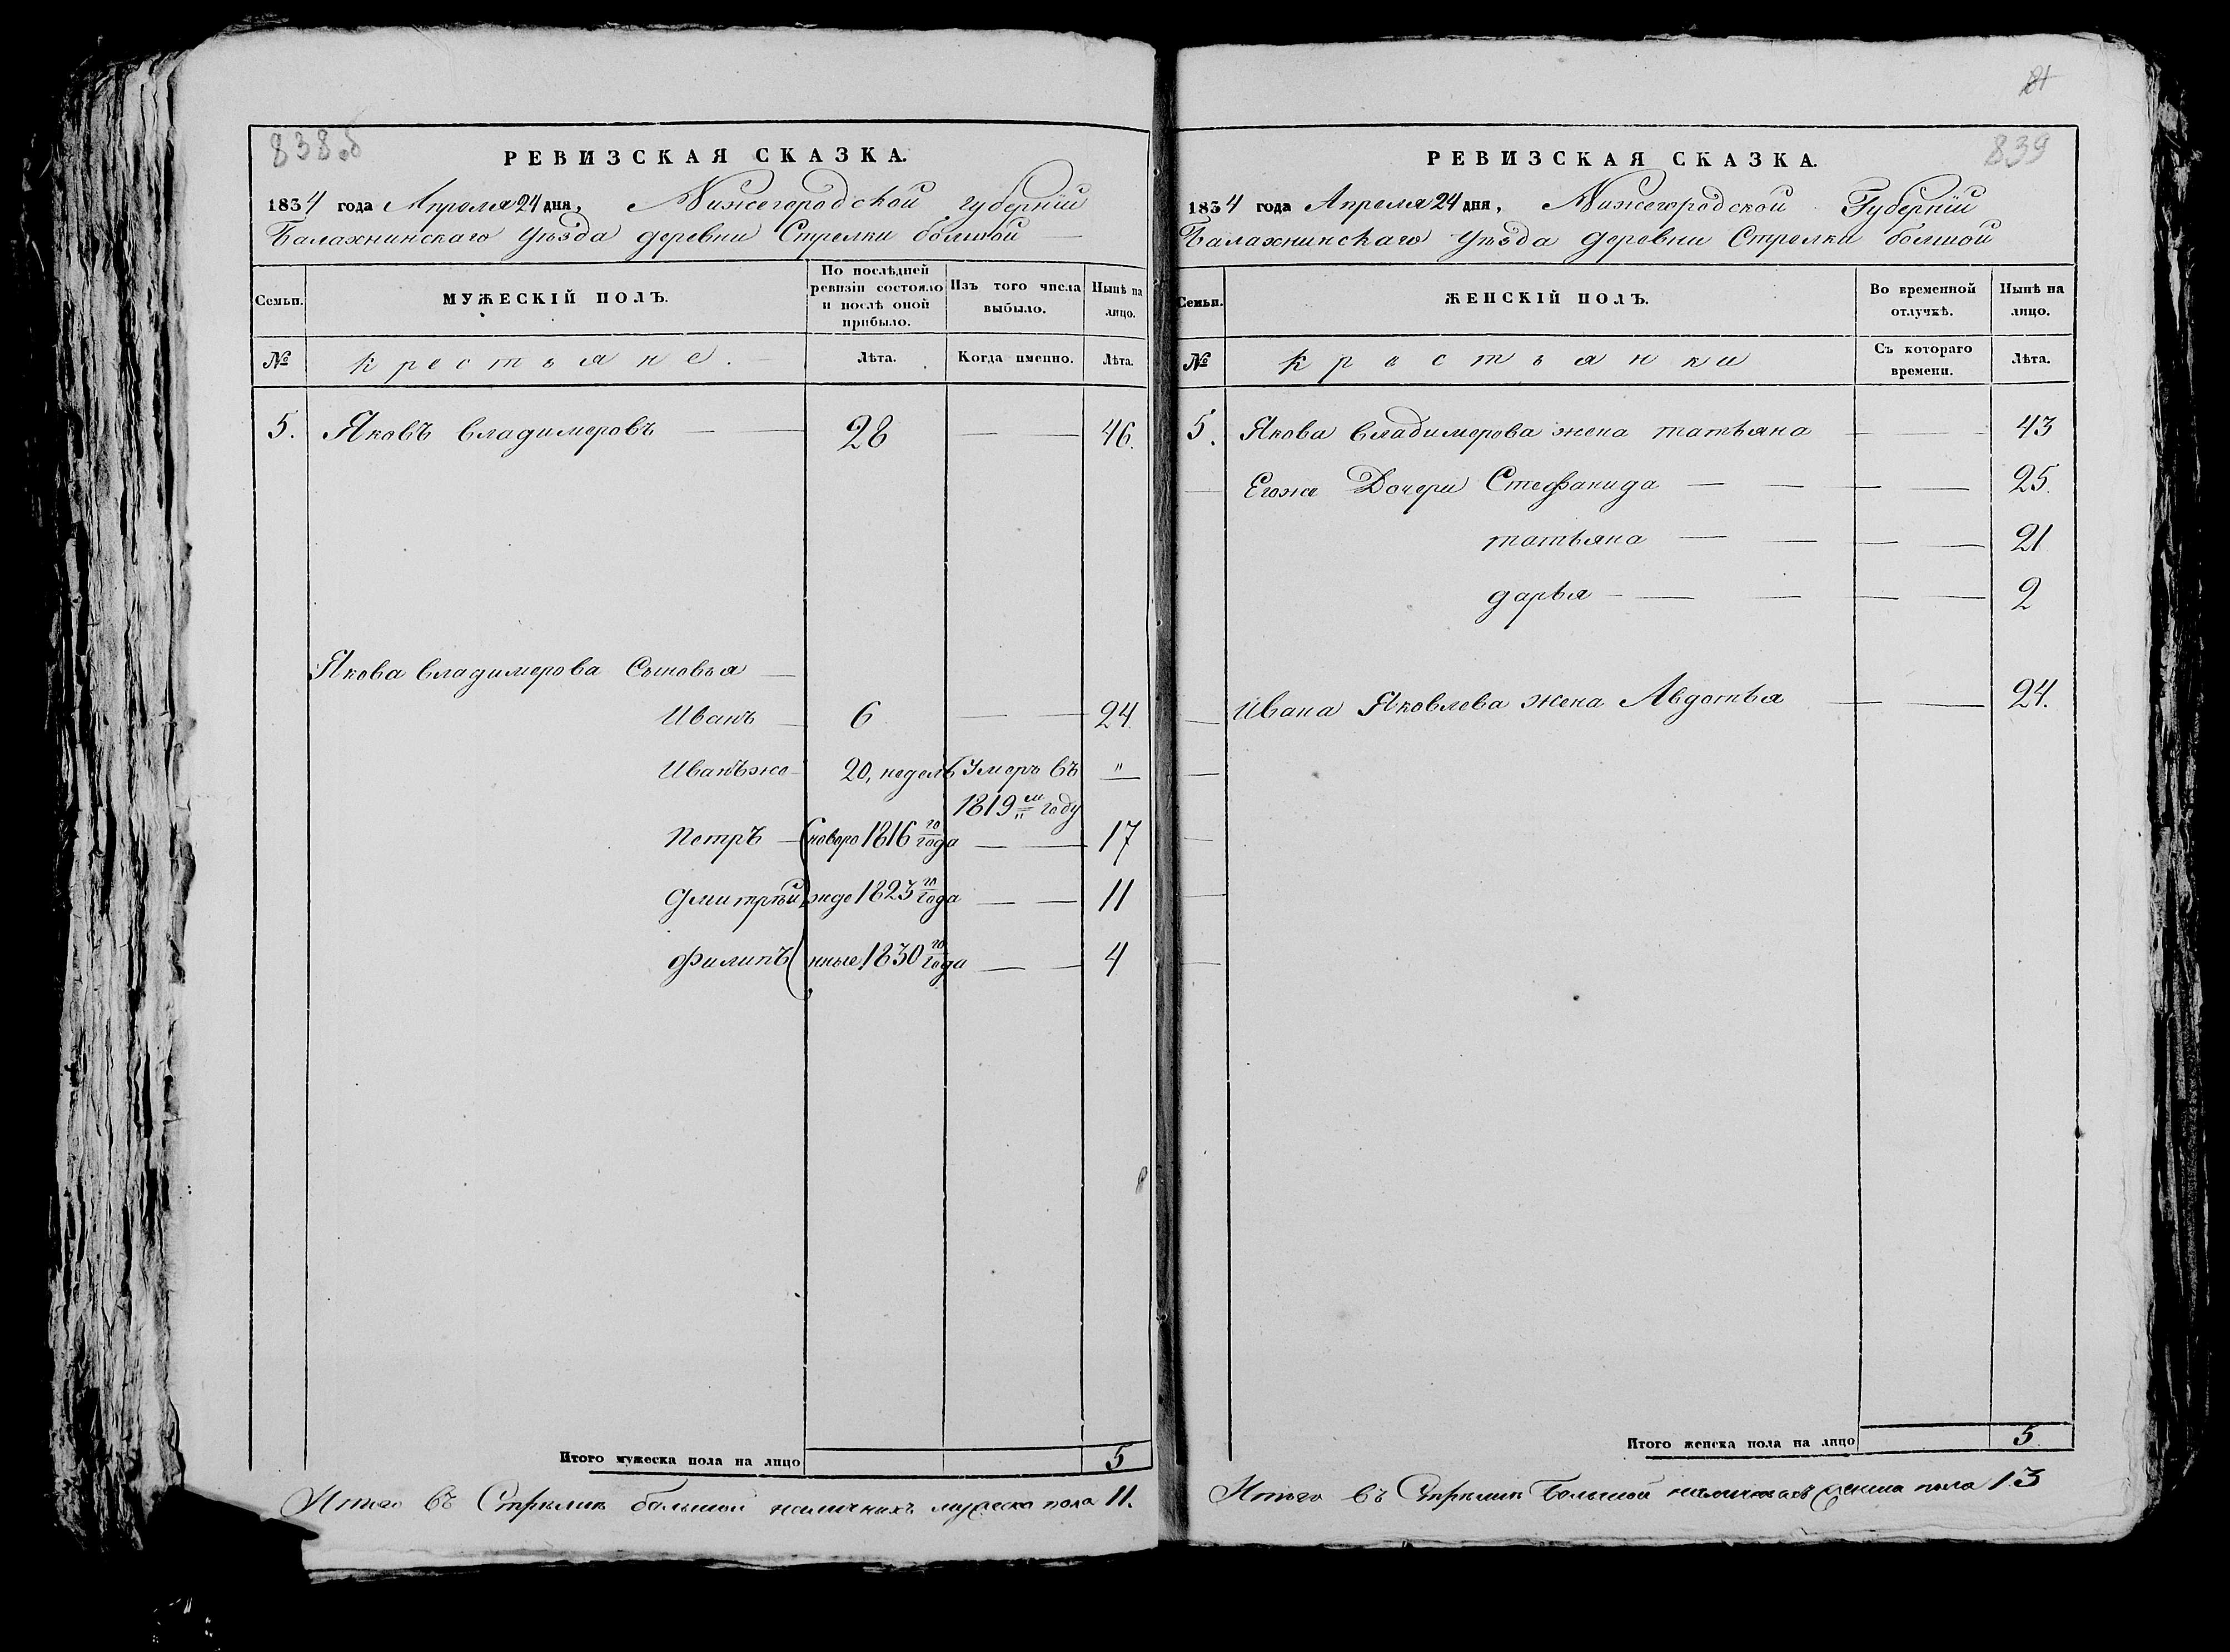 838об
РЕВИЗСКАЯ СКАЗКА.
1834 года Апреля 24 дня, Нижегородской губернiи
Балахнинскаго уѣзда деревни Стрелки болшой
Семьи.
МУЖЕСКІЙ ПОЛЪ.
По послѣдней ревизіи состояло и послѣ оной прибыло.
Изъ того числа выбыло.
Нынѣ на лицо.
№
крестьяне.
Лѣта.
Когда именно.
Лѣта.
5. Яковъ владимеровъ — 28 — 46.
Якова владимерова Сыновья
Иванъ 6 — 24.
Иванъже 20, недель Умеръ въ "
1819м году
Петръ — новоро 1816го года — 17
Дмитрѣй жде 1823го года — 11
Филипъ нные 1830го года — 4
Итого мужеска пола на лицо 5
Итого въ Стрелке большой наличныхъ мужеска пола 11.
81
839
РЕВИЗСКАЯ СКАЗКА.
1834 года Апреля 24 дня, Нижегородской Губернiи
Балахнинскаго уѣзда деревни Стрелки болшой
Семьи.
ЖЕНСКІЙ ПОЛЪ.
Во временной отлучкѣ.
Нынѣ на лицо.
№
крестьянки
Съ котораго времени.
Лѣта.
5. Якова владимерова жена татьяна — 43
Егоже Дочери Стефанида — 25.
татьяна — 21
дарья — 2
Ивана Яковлева жена Авдотья — 24.
Итого женска пола на лицо 5
Итого въ Стрелке Большой наличныхъ женска пола 13